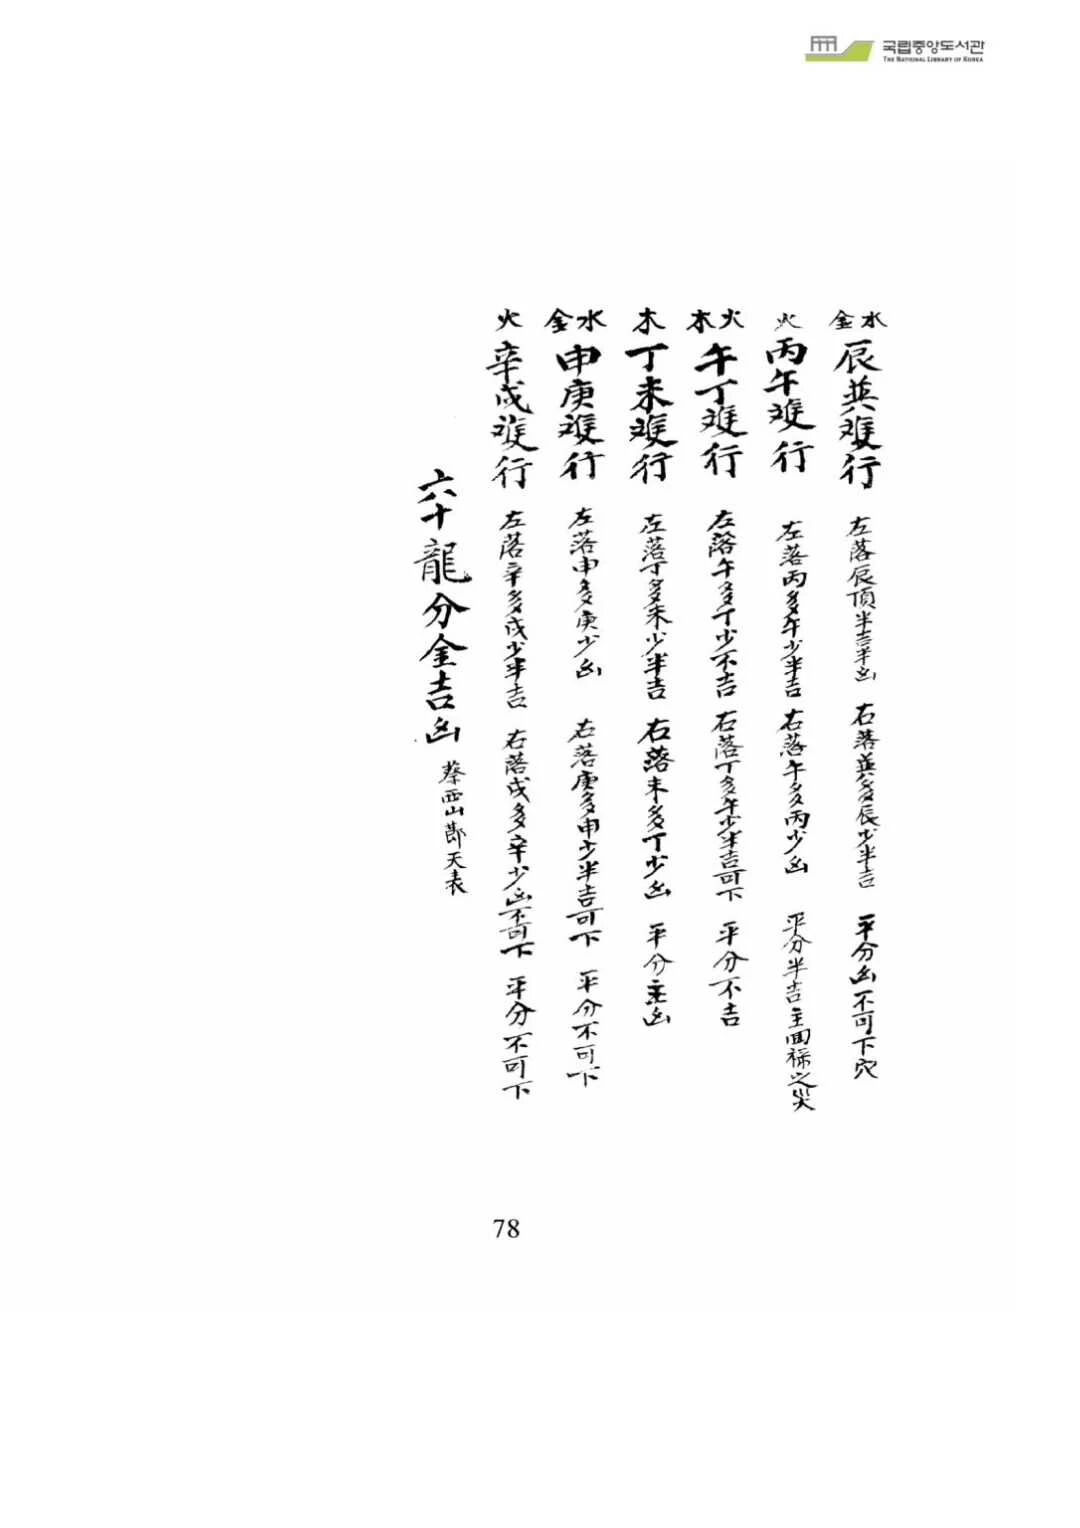 국립중앙도서관
THE NATIONAL LIBRARY OF KOREA
金水 辰巽难行 左落辰頂半吉半凶 右落巽多辰少半吉 平分凶不可下穴
火 丙午难行 左落丙多午少半吉 右落午多丙少凶 平分半吉主回祿之災
木火 午丁难行 左落午多丁少不吉 右落丁多午少半吉可下 平分不吉
木 丁未难行 左落丁多未少半吉 右落未多丁少凶 平分主凶
金水 申庚难行 左落申多庚少凶 右落庚多申少半吉可下 平分不可下
火 辛戌难行 左落辛多戌少半吉 右落戌多辛少凶不可下 平分不可下
六十龍分金吉凶 蔡西山 天表
78